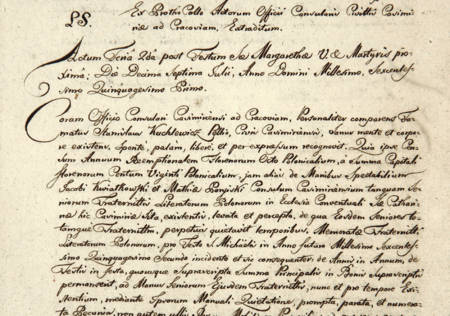 LS. Ex Protho Collo Actorum Officii Consularis Civilis Casimiriae ad Cracoviam, Extraditum.
Actum Feria 2da post Festum Sae Margarethae V. & Martyris proxima; Die Decima Septima Julii, Anno Domini Millesimo, Sexcentesimo Quinquagesimo Primo.
Coram Officio Consulari Casimiriensi ad Cracoviam, Personaliter comparens Famatus Stanislaus Civis Casimiriensis, sanus mente et corpore existens, sponte, palam, libere, et per expressum recognovit. Quia ipse Censum Annuum Reemptionalem Florenorum Octo Polonicalium, à Summa Capitali Florenorum Centum Viginti Polonicalium, jam alias de Manibus Spectabilium
Jacobi Kwiatkowski et Mathia Consulum Casimiriensium tanquam Seniorum Fraternitatis Literatorum Polonorum in Ecclesia Conventuali Sae Catharinae hic Casimiriae Sita, existentis, levata et percepta, de qua Eosdem Seniores totamque Fraternitatem, perpetuis quietavit temporibus. Memoratae Fraternitati
Literatorum Polonorum, pro Festo S. Michaelis in Anno futuro Millesimo Sexcentesimo Quinquagesimo Secundo incidente et sic consequenter de Anno in Annum, de Festo in Festum, quousque Suprascripta Summa Principalis in Bonis Suprascriptis permanserit, ad Manus Seniorum Ejusdem Fraternitatis, nunc et pro tempore Existentium, mediante Ipsorum Manuali Quietatione, prompta, parata, et numerata Pecunia, non